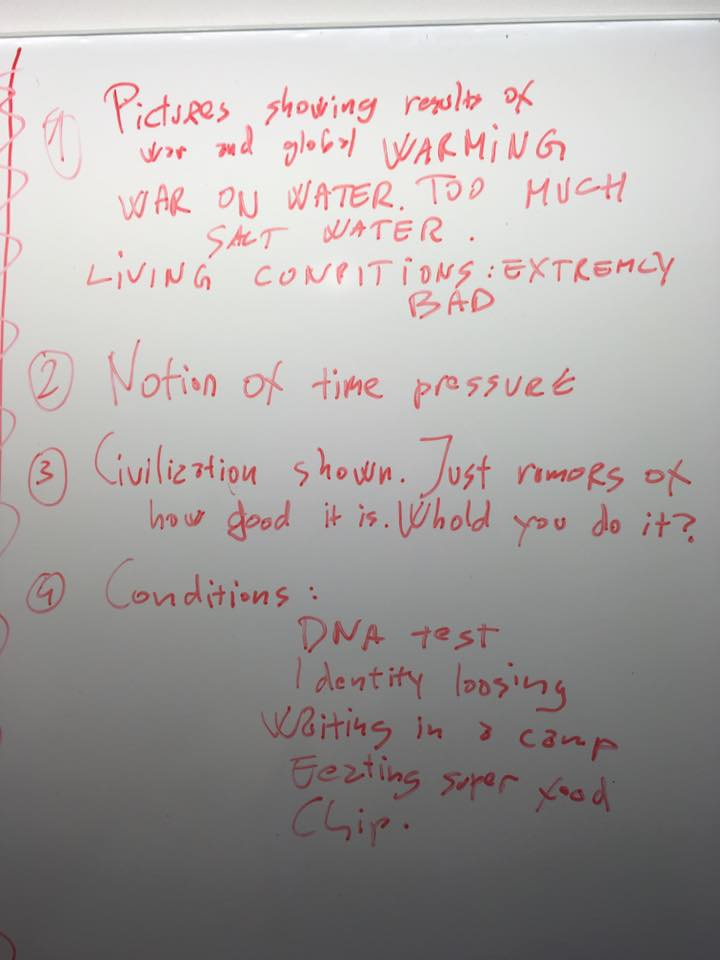 1 Pictures showing results of
war and global WARMING
WAR ON WATER. TOO MUCH
SALT WATER.
LIVING CONDITIONS: EXTREMLY
BAD
2 Notion of time pressure
3 Civilization shown. Just rumors of
how good it is. Whold you do it?
4 Conditions:
DNA test
Identity loosing
Waiting in a camp
Eeating super food
Chip.